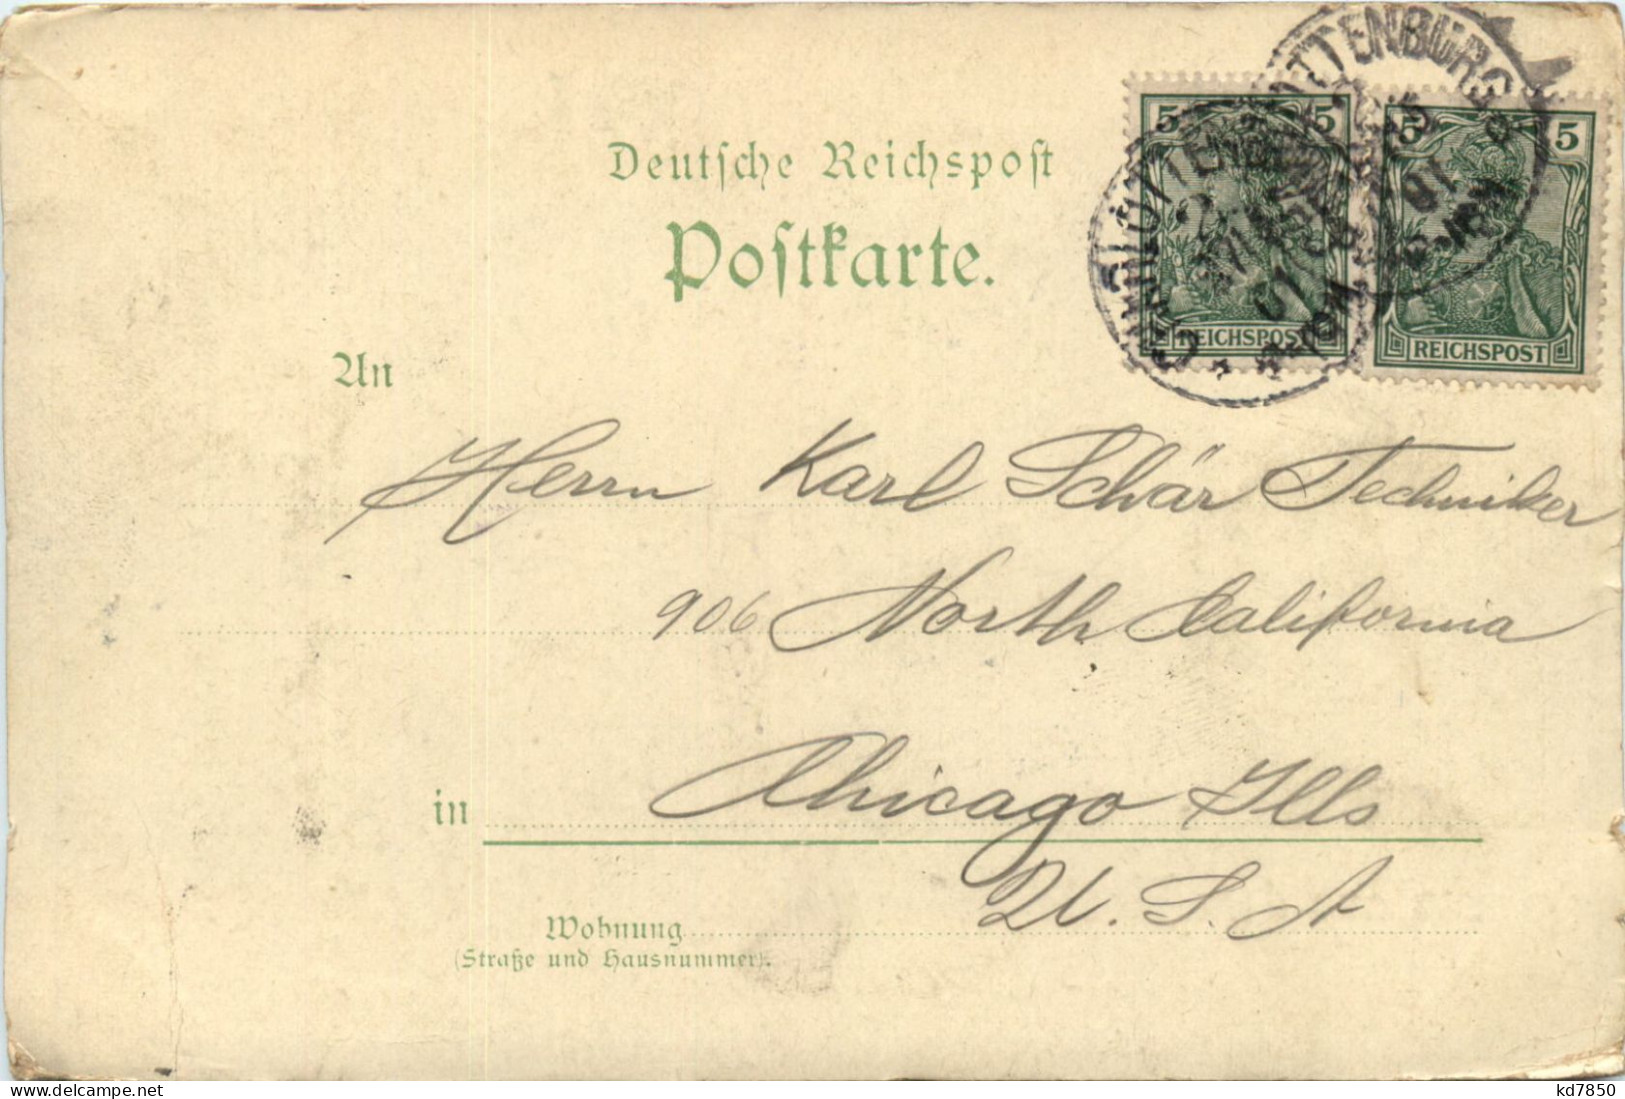 Deutsche Reichspost
Postkarte.
5 5
REICHSPOST
5 5
REICHSPOST
CHARLOTTENBURG
An
Herrn Karl Schär Techniker
906 North California
in Chicago Ills
U. S. A
Wohnung
(Straße und Hausnummer).
delcampe.net
kd7850